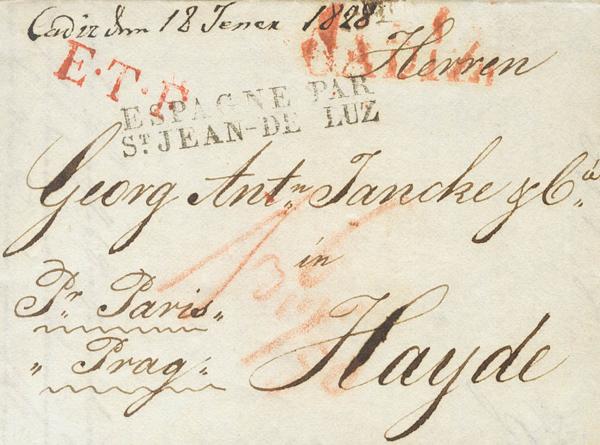 Cadiz den 18 Jener 1828
Herren
E.T.P.
ESPAGNE PAR
ST JEAN-DE LUZ
Georg Antn Jancke & Ca
in
Pr Paris
Hayde
" Prag